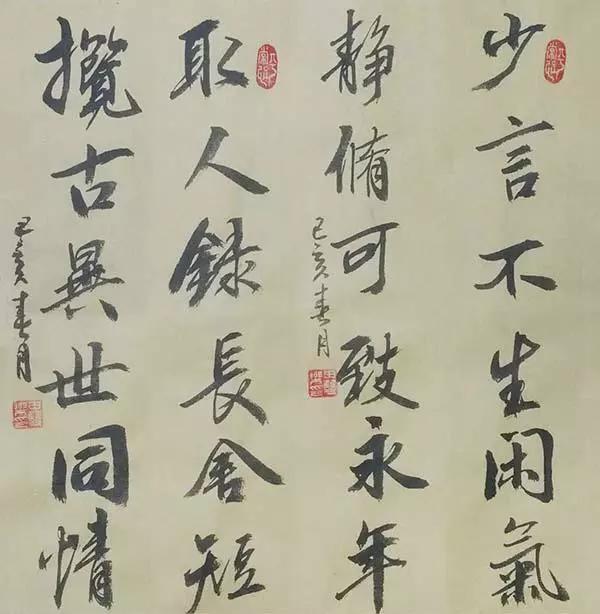 少言不生閑氣
静脩可致永年
己亥春月
取人録長舍短
攬古異世同情
己亥春月